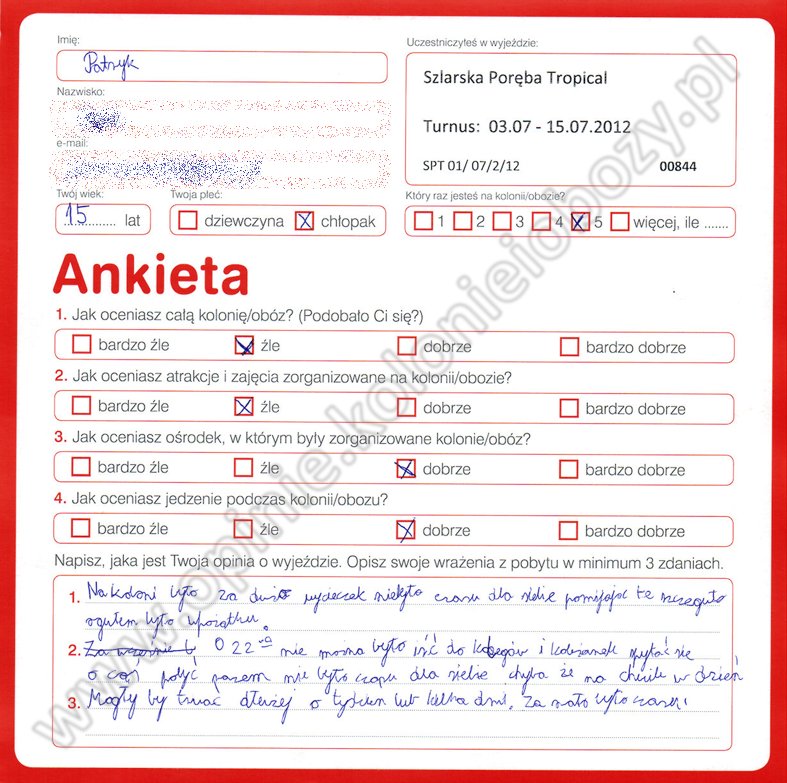 Imię:
Patryk
Nazwisko:
e-mail:
Twój wiek:
15 lat
Twoja płeć:
dziewczyna chłopak
Uczestniczyłeś w wyjeździe:
Szlarska Poręba Tropical
Turnus: 03.07 - 15.07.2012
SPT 01/ 07/2/12 00844
Który raz jesteś na kolonii/obozie?
1 2 3 4 5 więcej, ile .......
Ankieta
1. Jak oceniasz całą kolonię/obóz? (Podobało Ci się?)
bardzo źle źle dobrze bardzo dobrze
2. Jak oceniasz atrakcje i zajęcia zorganizowane na kolonii/obozie?
bardzo źle źle dobrze bardzo dobrze
3. Jak oceniasz ośrodek, w którym były zorganizowane kolonie/obóz?
bardzo źle źle dobrze bardzo dobrze
4. Jak oceniasz jedzenie podczas kolonii/obozu?
bardzo źle źle dobrze bardzo dobrze
Napisz, jaka jest Twoja opinia o wyjeździe. Opisz swoje wrażenia z pobytu w minimum 3 zdaniach.
1. Na koloni było za dużo wycieczek czasu dla siebie pomijając te szczeguło
ogułem było wporządku.
2. Za wcześnie O 22 nie można było iść do kolegów i koleżanek spytać się
o coś pobyć razem nie było czasu dla siebie chyba że na chwile w dzień
3. Mogły by trwać dłużej o tydzien lub kilka dni. Za mało było czasu
www.opinie.kolonieiobozy.pl